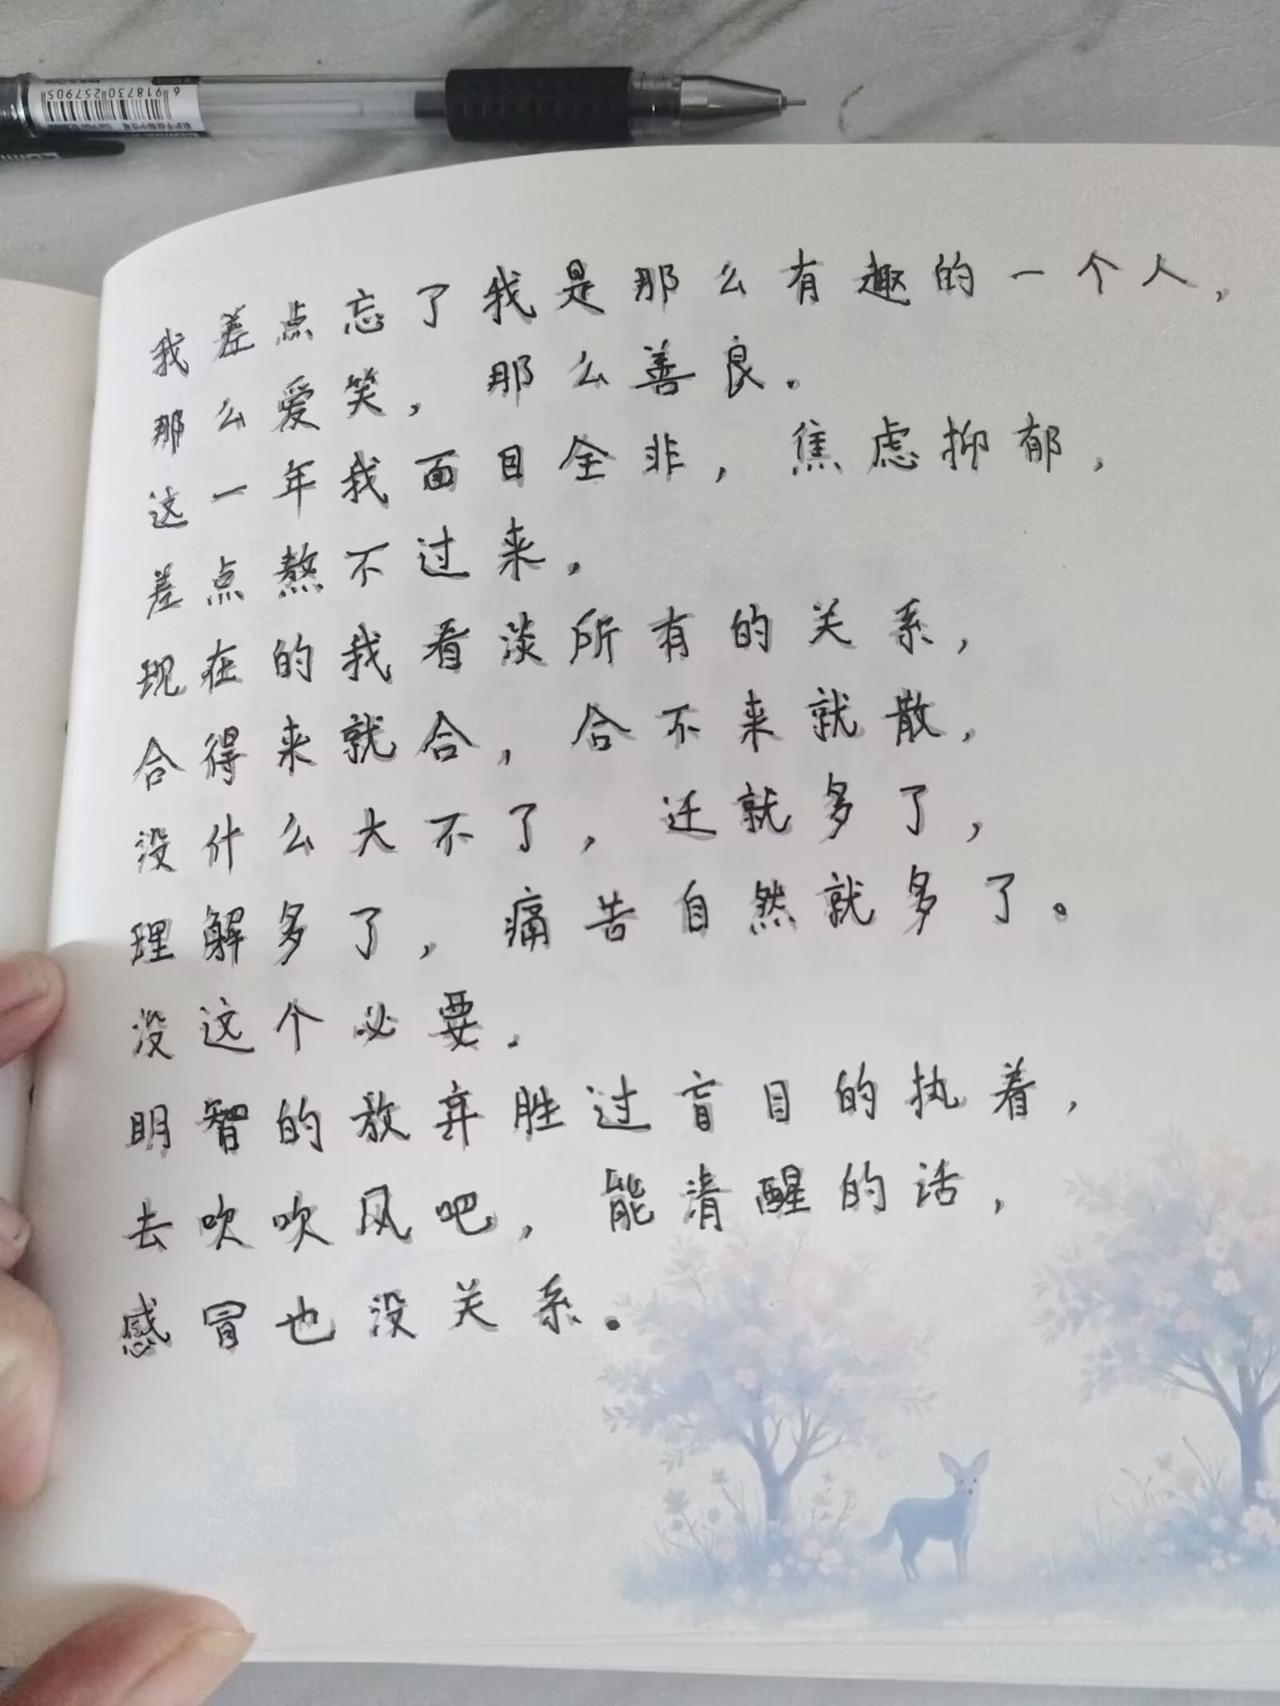 6918730257905
我差点忘了我是那么有趣的一个人，
那么爱笑，那么善良。
这一年我面目全非，焦虑抑郁，
差点熬不过来，
现在的我看淡所有的关系，
合得来就合，合不来就散，
没什么大不了，迁就多了，
理解多了，痛苦自然就多了。
没这个必要.
明智的放弃胜过盲目的执着，
去吹吹风吧，能清醒的话，
感冒也没关系。